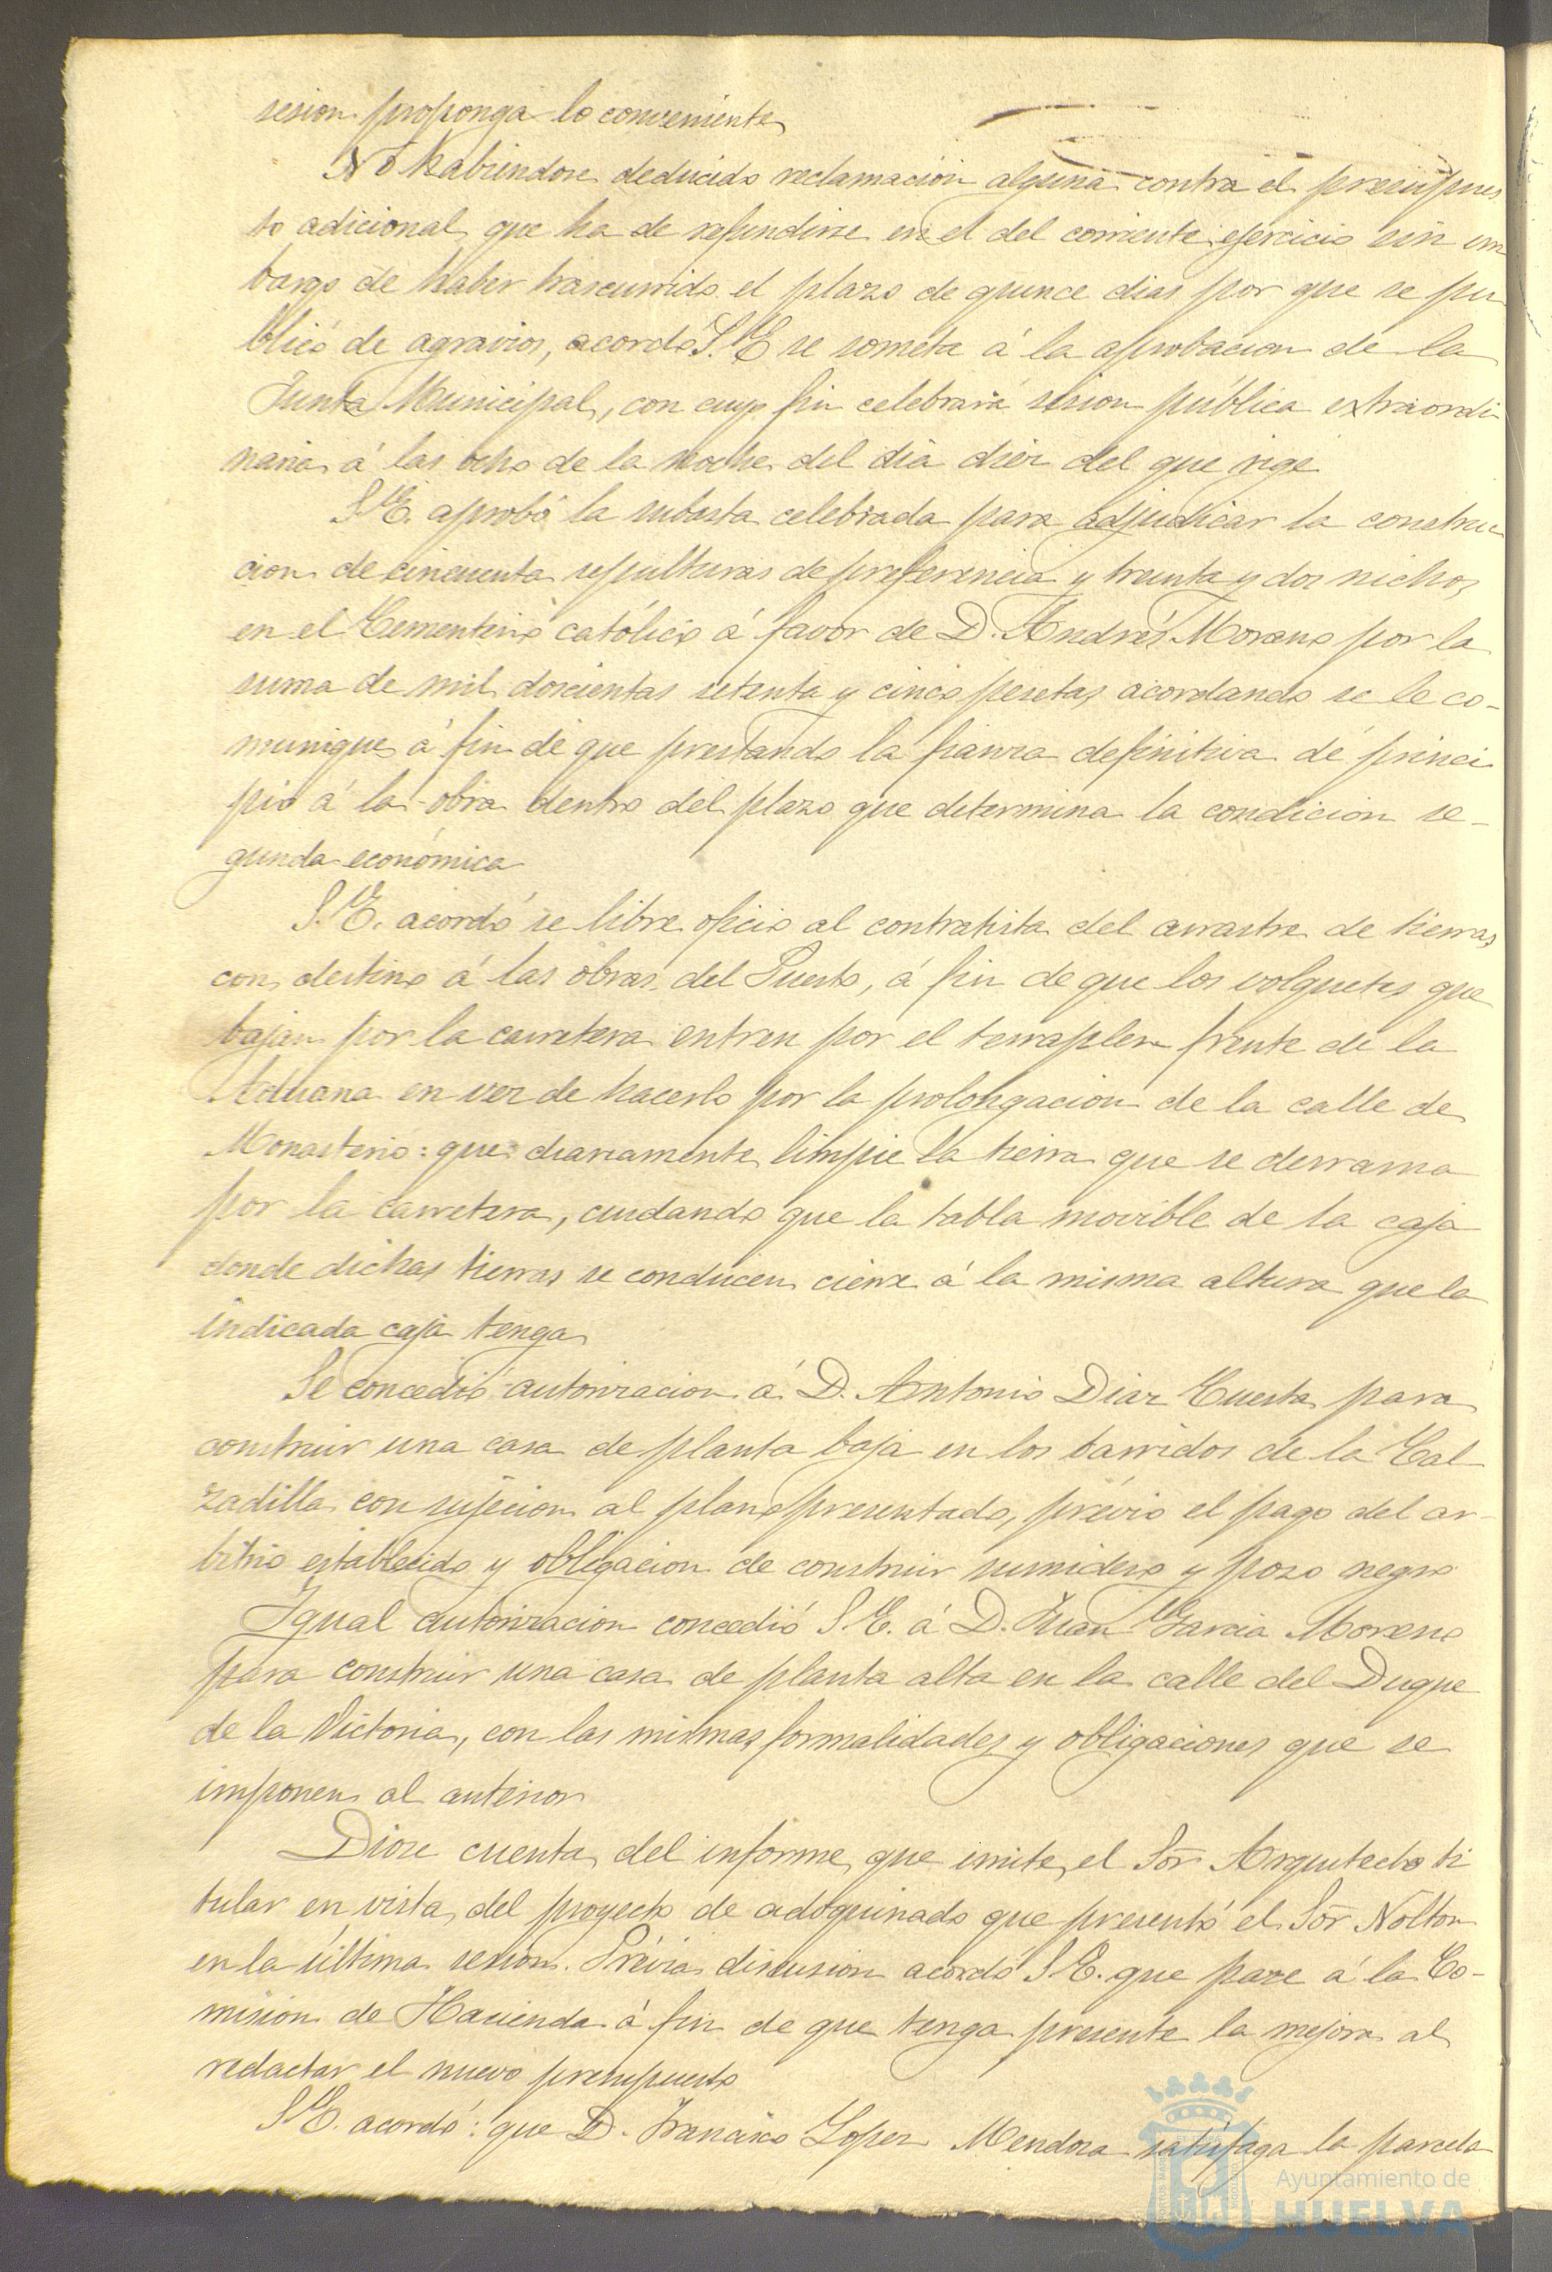 sesion proponga lo conveniente
No habiendose deducido reclamación alguna contra el presupues
to adicional que ha de refundirse en el del corriente ejercicio sin em
bargo de haber trascurrido el plazo de quince dias por que se pu
blicó de agravios, acordó S.E se someta á la aprobacion de la
Junta Municipal, con cuyo fin celebrará sesion pública extraordi
naria á las ocho de la noche del dia diez del que rige
S.E. aprobó la subasta celebrada para adjudicar la construc
cion de cincuenta sepulturas de preferencia y treinta y dos nichos
en el Cementerio católico á favor de D. Andrés Moreno por la
suma de mil doscientas setenta y cinco pesetas acordando se le co-
munique á fin de que prestando la fianza definitiva dé princi
pio á la obra dentro del plazo que determina la condicion se-
gunda económica
S.E. acordó se libre oficio al contratista del arrastre de tierras
con destino á las obras del Puerto, á fin de que los volquetes que
bajan por la carretera entren por el terraplen frente de la
Aduana en vez de hacerlo por la prolongacion de la calle de
Monasterio: que diariamente limpie la tierra que se derrama
por la carretera, cuidando que la tabla movible de la caja
donde dichas tierras se conducen cierre á la misma altura que la
indicada caja tenga
Se concedió autorizacion á D. Antonio Diaz Cuesta para
construir una casa de planta baja en los barridos de la Cal
zadilla con sujecion al plano presentado, prévio el pago del ar-
bitrio establecido y obligacion de construir sumidero y pozo negro
Igual autorizacion concedió S.E. á D. Juan Garcia Moreno
para construir una casa de planta alta en la calle del Duque
de la Victoria, con las mismas formalidades y obligaciones que se
imponen al anterior
Diose cuenta del informe que emite el Sor Arquitecto ti
tular en vista del proyecto de adoquinado que presentó el Sor Nolton
en la última sesion. Prévia discusion acordó S.E. que pase á la Co-
mision de Hacienda á fin de que tenga presente la mejora al
redactar el nuevo presupuesto
S.E. acordó: que D. Francisco Lopez Mendoza satisfaga la parcela
Ayuntamiento de
HUELVA